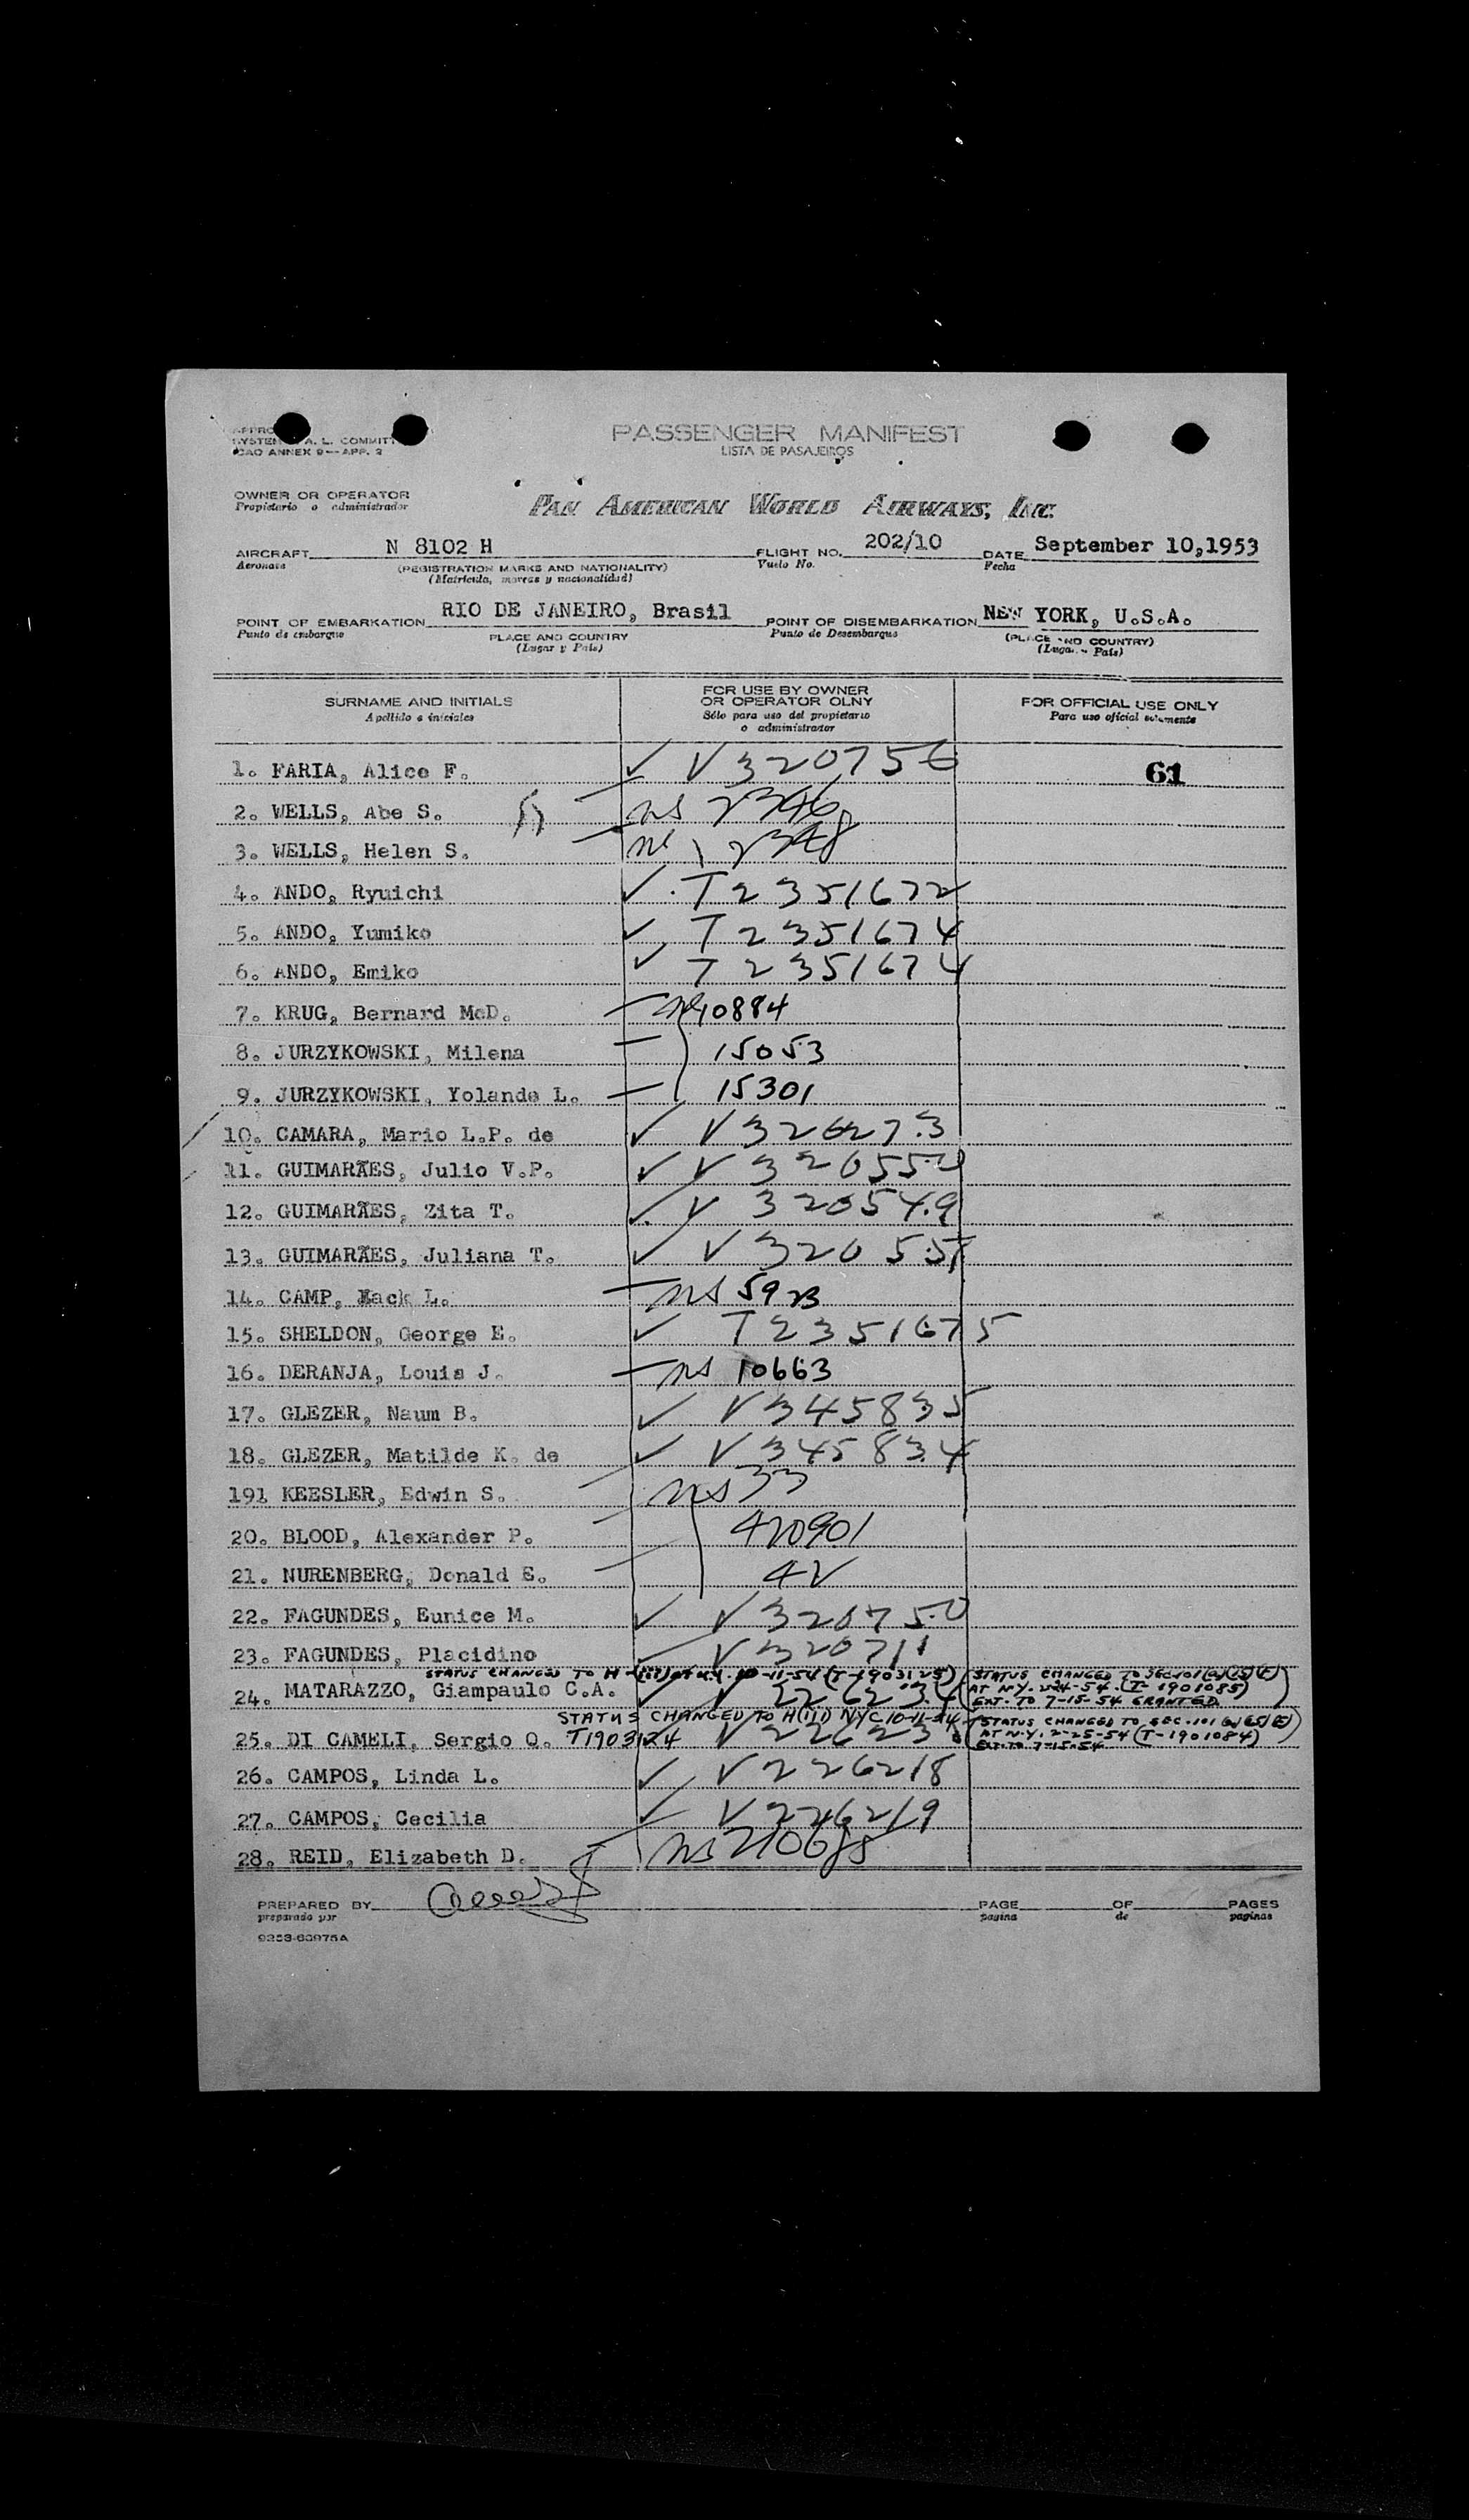 PASSENGER MANIFEST
A. L. COMMITT
ICAO ANNEX 9—APP. 2
LISTA DE PASAJEIROS
OWNER OR OPERATOR
Propietario o administrador
PAN AMERICAN WORLD AIRWAYS, INC.
AIRCRAFT N 8102 H FLIGHT NO. 202/10 DATE September 10,1953
Aeronave (REGISTRATION MARKS AND NATIONALITY) Vuelo No. Fecha
(Matrícula, marcas y nacionalidad)
POINT OF EMBARKATION RIO DE JANEIRO, Brasil POINT OF DISEMBARKATION NEW YORK, U.S.A.
Punto de embarque PLACE AND COUNTRY Punto de Desembarque (PLACE AND COUNTRY)
(Lugar y País) (Lugar y País)
SURNAME AND INITIALS FOR USE BY OWNER OR OPERATOR OLNY FOR OFFICIAL USE ONLY
Apellido e iniciales Sólo para uso del propietario o administrador Para uso oficial solamente
1. FARIA, Alice F. ✓ V320756 61
2. WELLS, Abe S. ns 2346
3. WELLS, Helen S. 2348
4. ANDO, Ryuichi ✓ T2351672
5. ANDO, Yumiko ✓ T2351674
6. ANDO, Emiko ✓ T2351674
7. KRUG, Bernard McD. 10884
8. JURZYKOWSKI, Milena 15053
9. JURZYKOWSKI, Yolande L. 15301
10. CAMARA, Mario L.P. de ✓ V320273
11. GUIMARÃES, Julio V.P. ✓ V320550
12. GUIMARÃES, Zita T. ✓ V320549
13. GUIMARÃES, Juliana T. ✓ V320551
14. CAMP, Mack L. ns 5923
15. SHELDON, George E. ✓ T2351675
16. DERANJA, Louis J. ns 10663
17. GLEZER, Naum B. ✓ V345835
18. GLEZER, Matilde K. de ✓ V345834
191 KEESLER, Edwin S. ns 33
20. BLOOD, Alexander P. 420901
21. NURENBERG, Donald E.
22. FAGUNDES, Eunice M. ✓ V320750
23. FAGUNDES, Placidino ✓ V320711
STATUS CHANGED TO H (iii) at N.Y. 10-11-54 (T-1903125) STATUS CHANGED TO SEC. 101(a)(15)(E)
24. MATARAZZO, Giampaulo C.A. ✓ V226234 AT N.Y. 2-24-54. (T-1901085)
EXT. TO 7-15-54 GRANTED
STATUS CHANGED TO H(III) NYC 10-11-54 STATUS CHANGED TO SEC. 101 (a)(15)(E)
25. DI CAMELI, Sergio O. T1903124 AT N.Y. 2-25-54 (T-1901084)
EXT. TO 7-15-54
26. CAMPOS, Linda L. ✓ V226218
27. CAMPOS, Cecilia ✓ V226219
28. REID, Elizabeth D. ns 210685
PREPARED BY PAGE OF PAGES
preparado por pagina de paginas
9253-63975A